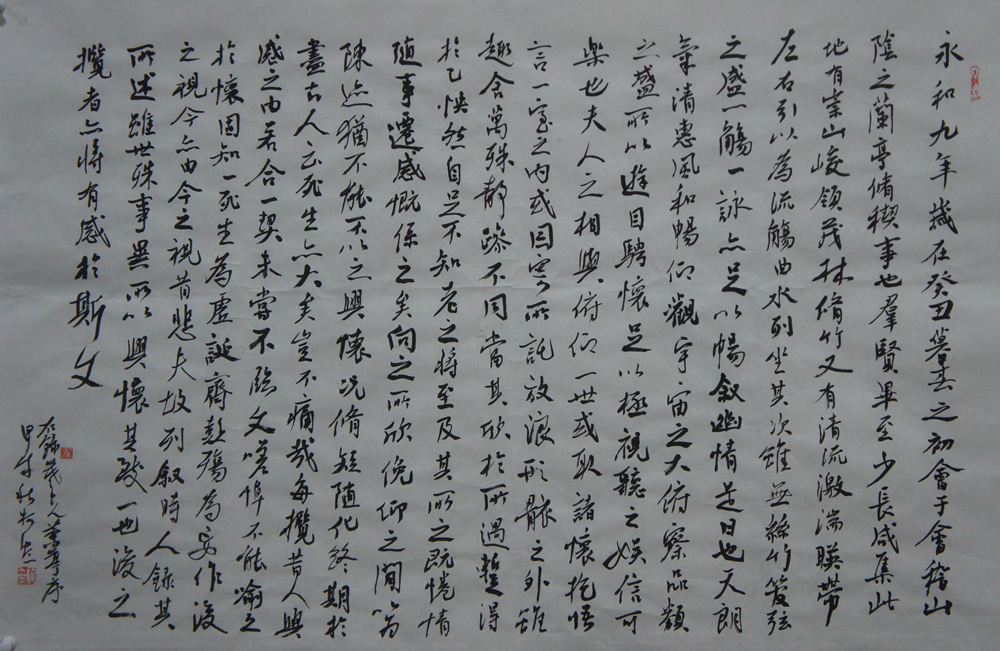 永和九年歲在癸丑暮春之初會于會稽山
陰之蘭亭脩稧事也羣賢畢至少長咸集此
地有崇山峻領茂林脩竹又有清流激湍暎帶
左右引以為流觴曲水列坐其次雖無絲竹管弦
之盛一觴一詠亦足以暢敘幽情是日也天朗
氣清惠風和暢仰觀宇宙之大俯察品類
之盛所以遊目騁懷足以極視聽之娛信可
樂也夫人之相與俯仰一世或取諸懷抱悟
言一室之內或因寄所託放浪形骸之外雖
趣舍萬殊靜躁不同當其欣於所遇蹔得
於己怏然自足不知老之將至及其所之既惓情
隨事遷感慨係之矣向之所欣俛仰之間以為
陳迹猶不能不以之興懷況脩短隨化終期於
盡古人云死生亦大矣豈不痛哉每攬昔人興
感之由若合一契未嘗不臨文嗟悼不能喻之
於懷固知一死生為虛誕齊彭殤為妄作後
之視今亦由今之視昔悲夫故列敘時人錄其
所述雖世殊事異所以興懷其致一也後之
攬者亦將有感於斯文
右錄羲之蘭亭序
甲申秋